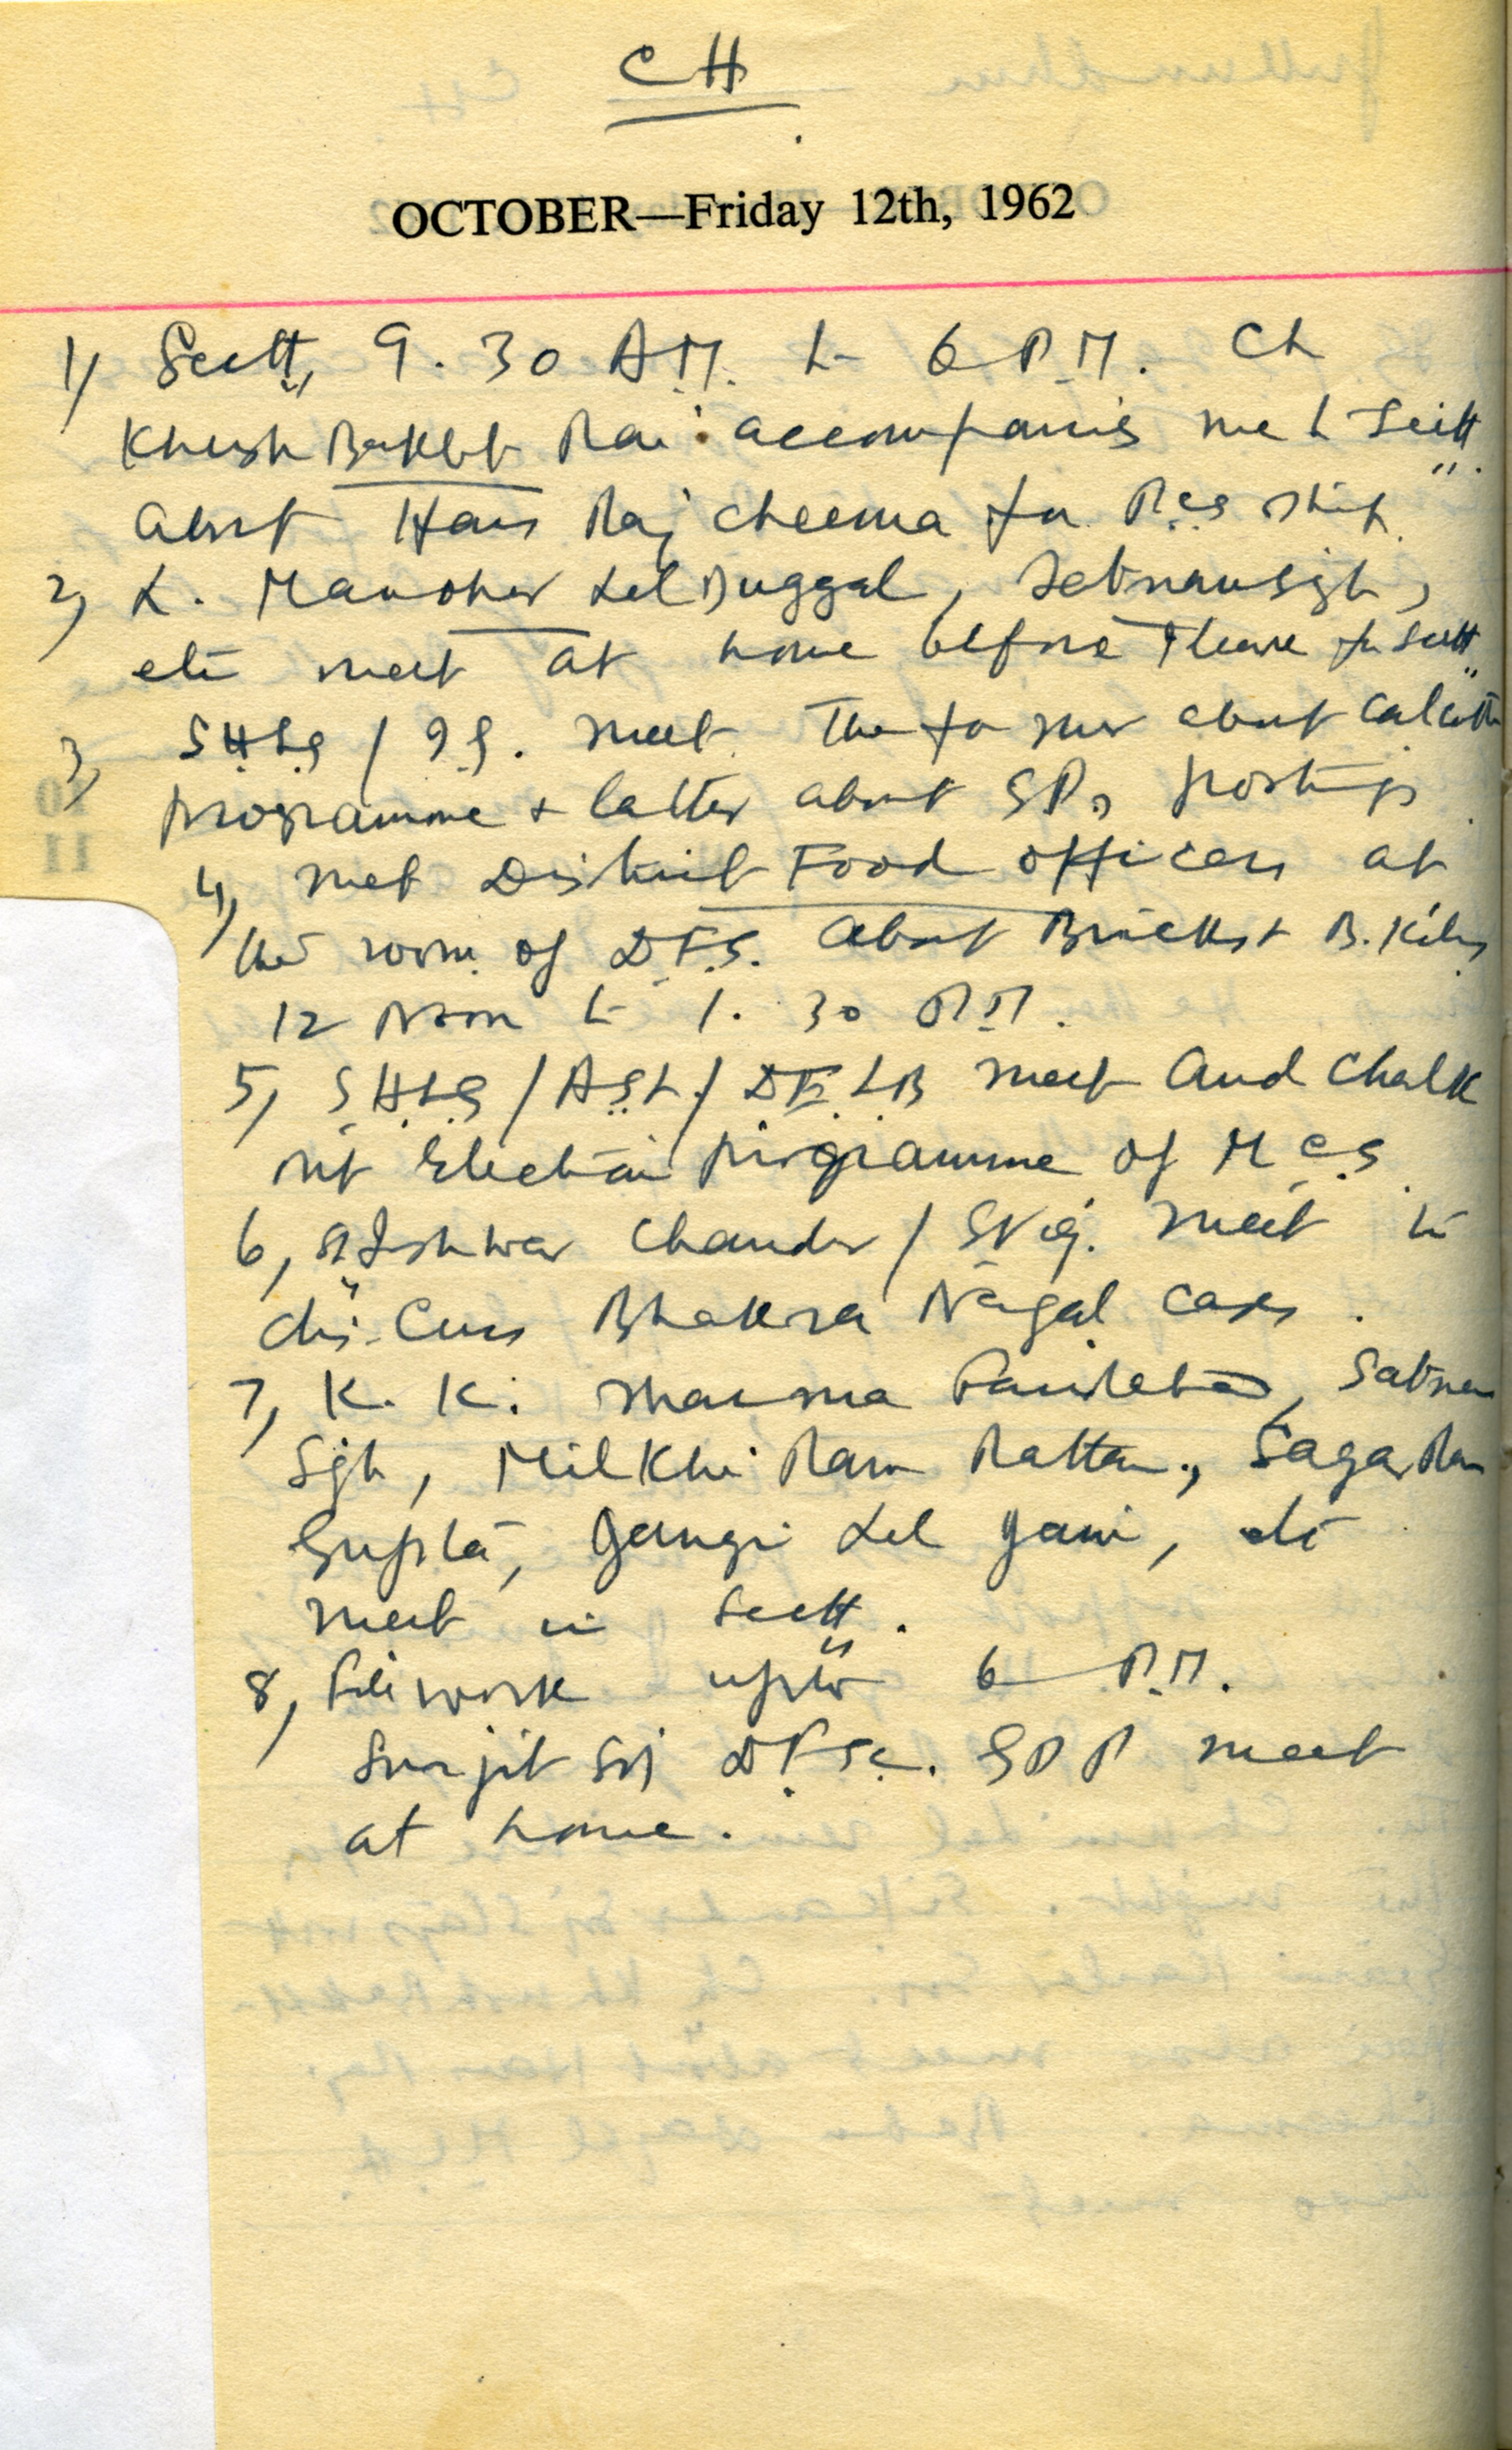 CH
OCTOBER—Friday 12th, 1962
1) Sectt, 9.30 A.M. to 6 P.M. Ch
Khush Bakht Rai accompanies me to Sectt.
about Hans Raj Cheema for P.C.S. ship.
2) L. Manohar Lal Duggal, Satnam Sgh,
etc meet at home before I leave for Sectt
3) SHLG / IG. meet. The former about Calcutta
programme + latter about SPs postings.
4) Met District Food officers at
the room of D.F.S. about Bricks + B. Kilns
12 Noon to 1.30 P.M.
5) SHLG / / meet and chalk
out Election programme of M.C.S.
6) Ishwar Chander / meet to
discuss Bhakra Nangal cases.
7) K. K. Sharma, Satnam
Sgh, Milkhi Ram Rattan, Sagar Ram
Gupta, Jangi Lal Jain, etc
meet in Sectt.
8) File work upto 6 P.M.
Surjit Sgh D.F.S.C. meet
at home.